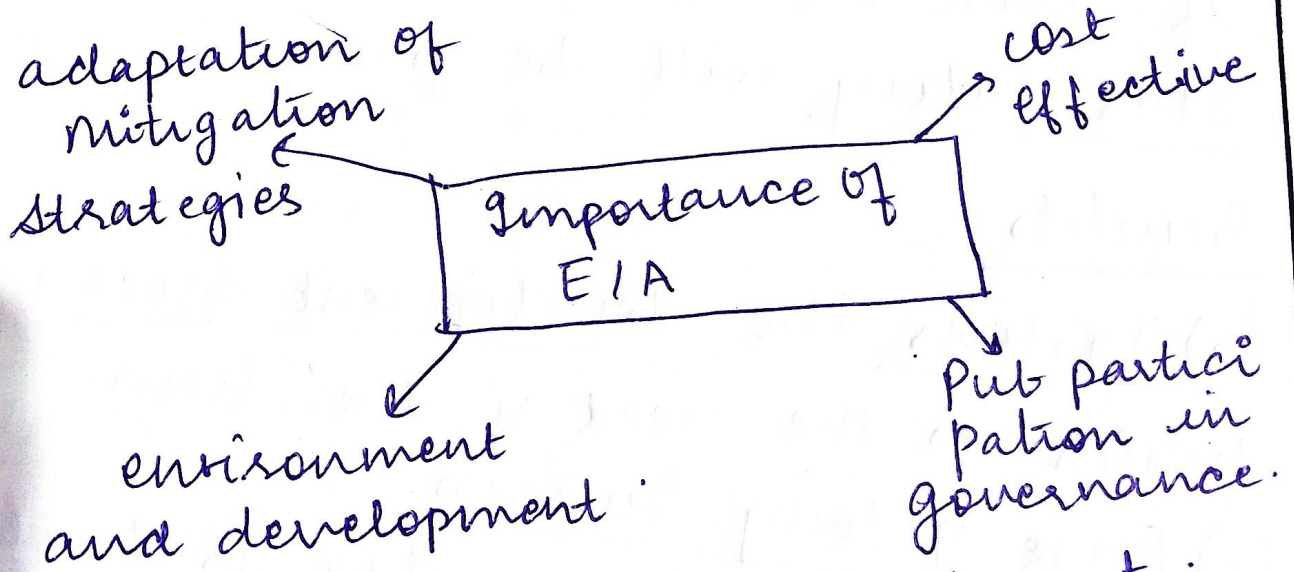 adaptation of
mitigation
strategies
cost
effective
Importance of
EIA
environment
and development.
Pub partici
pation in
governance.